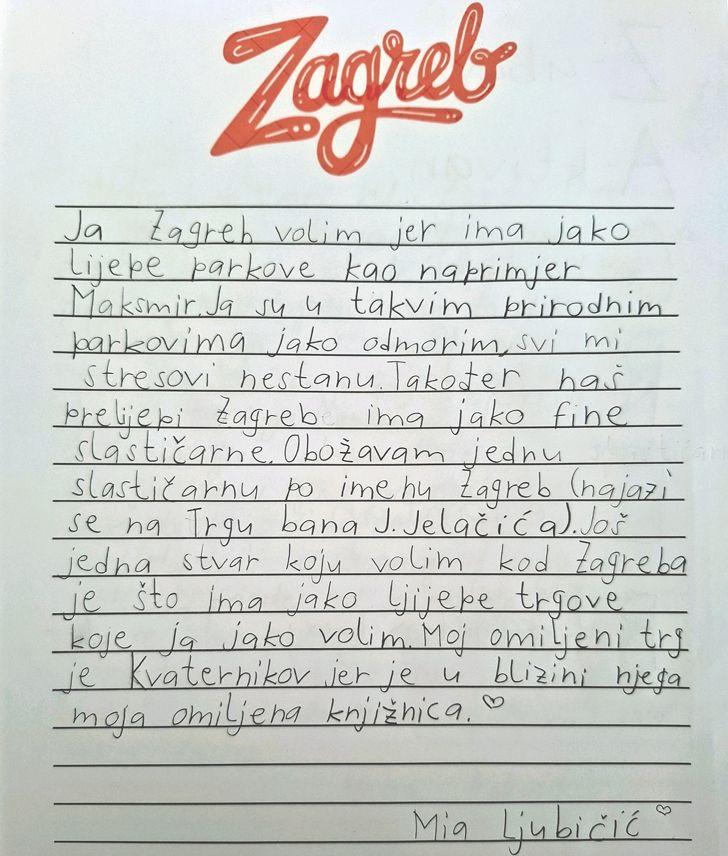 Zagreb
Ja Zagreb volim jer ima jako
lijepe parkove kao naprimjer
Maksmir. Ja su u takvim prirodnim
parkovima jako odmorim, svi mi
stresovi nestanu. Također naš
prelijepi Zagreb ima jako fine
slastičarne. Obožavam jednu
slastičarnu po imenu Zagreb (najazi
se na Trgu bana J. Jelačića). Još
jedna stvar koju volim kod Zagreba
je što ima jako ljijepe trgove
koje ja jako volim. Moj omiljeni trg
je Kvaternikov jer je u blizini njega
moja omiljena knjižnica. ♡
Mia Ljubičić ♡